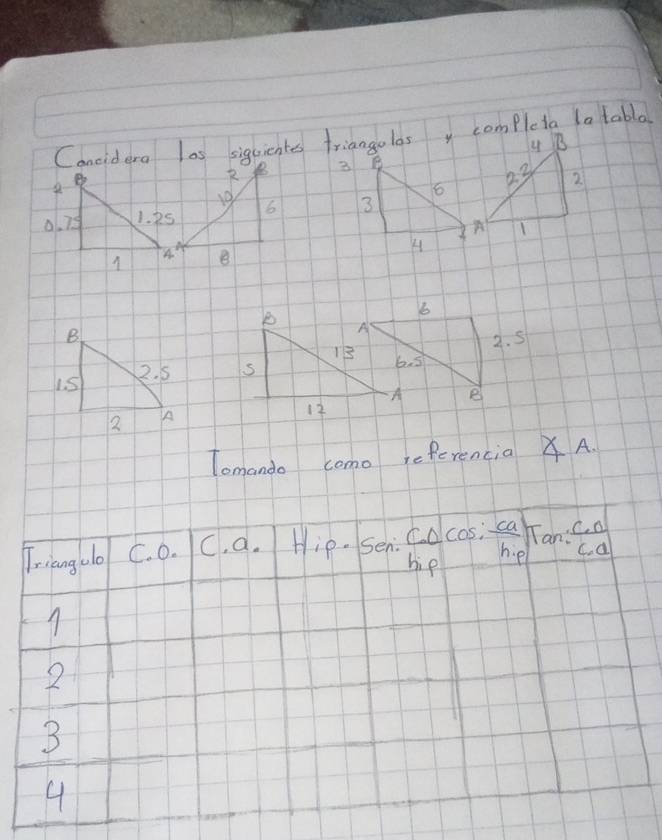 Concidera los siguientes triangulos y completa la tabla
B 2 B 3 B 4 B
0.75 1.25 10 6 3 5 2.2 2
1 A A 8 4 A 1
B B A 6
1.5 2.5 5 13 6.5 2.5
2 A 12 A B
Tomando como referencia ∡ A.
Triangulo C.O. C.a. Hip. Sen: C.O/hip cos: ca/hip Tan: C.O/C.a
1
2
3
4